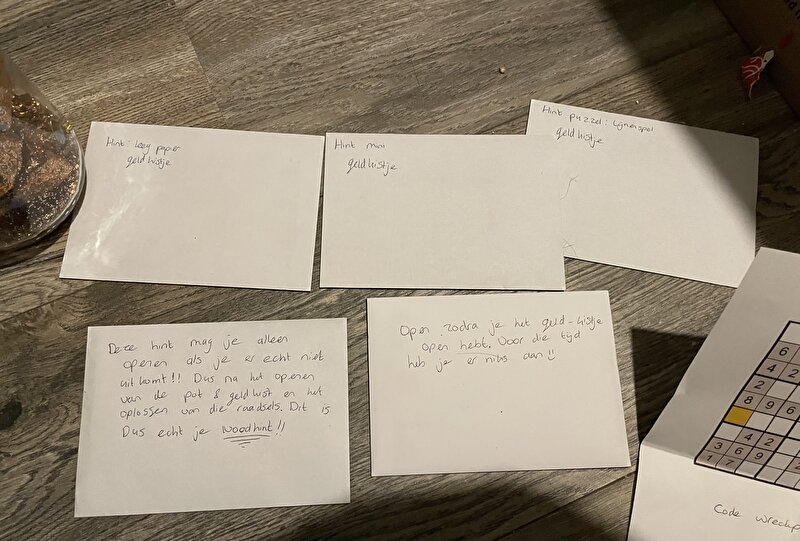 Hint: leeg papier
geldkistje
Hint mini
geldkistje
Hint puzzel: lijnenspel
geldkistje
Deze hint mag je alleen
openen als je er echt niet
uit komt!! Dus na het openen
van de pot & geldkist en het
oplossen van die raadsels. Dit is
Dus echt je Noodhint!!
Open zodra je het geld-kistje
open hebt. Voor die tijd
heb je er niks aan!!
6
4 2
2
8 9 6
4 2
3 6 9
1 7
Code